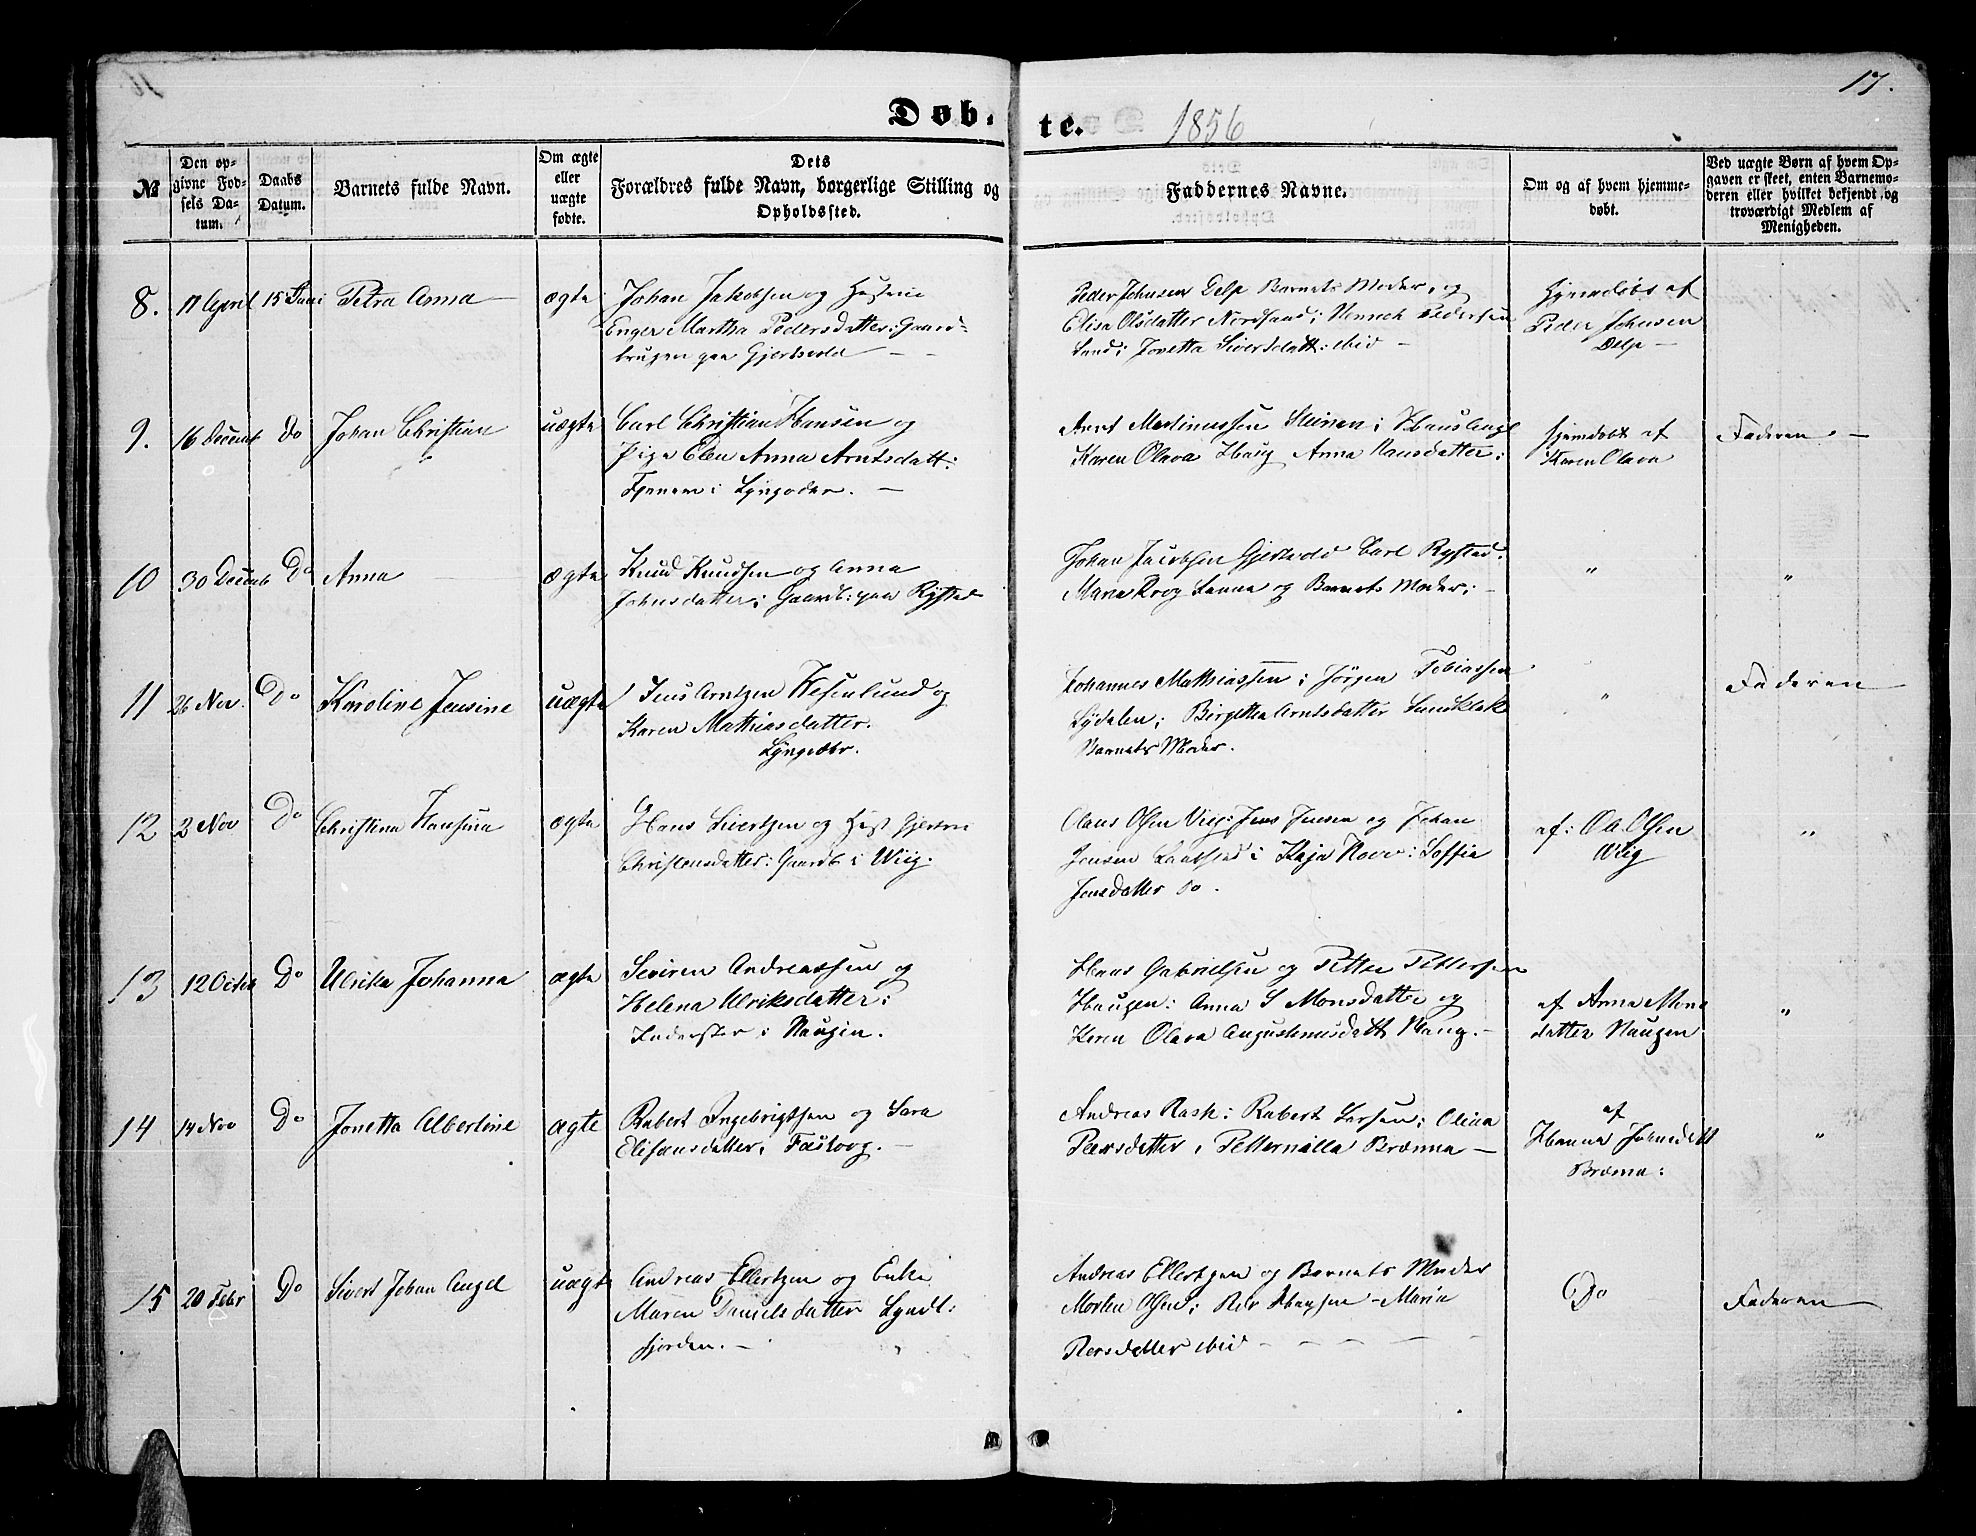 17.
Døb- te. 1856
№
Den op-
givne Fød-
sels Da-
tum.
Daabs
Datum.
Barnets fulde Navn.
Om ægte
eller
uægte
fødte.
Dets
Forældres fulde Navn, borgerlige Stilling og
Opholdssted.
Faddernes Navne.
Om og af hvem hjemme-
døbt.
Ved uægte Børn af hvem Op-
gaven er skeet, enten Barnemo-
deren eller hvilket bekjendt og
troværdigt Medlem af
Menigheden.
8. 17 April 15 Juni Petra Anna — ægte
Johan Jakobsen og Hustrue
Enger Martha Pedersdatter: Gaard-
brugen paa Gjerstvold — —
Peder Johnsen Delp Barnets Moder, og
Elisa Olsdatter Nordsand; Pedersen
Sand; Jonetta Sivertsdatt: ibid —
Hjemdøbt af
Peder Johnsen
Delp —
9. 16 Decemb Do Johan Christian uægte
Carl Christian Hansen og
Pige Elen Anna Arntsdatt:
i Lyngvær. —
Arnt Martinussen Steinen; Hans Angel
Karen Olava Haug Anna Hansdatter;
Hjemdøbt af
Karen Olava
Faderen. —
10 30 Decemb Do Anna ægte
Knud Knudsen og Anna
Johnsdatter; Gaardb: paa Rystad
Johan Jacobsen Gjerstvold Carl Rystad.
Maria Krog Sanna og Barnets Moder; —
" "
11 26 Nov. Do Karoline Jensine uægte
Jens Arntzen Wesenlund og
Karen Mathiasdatter.
Lyngvær.
Johannes Mathiassen; Jørgen Tobiassen
Sydalen; Birgitha Arntsdatter Sundklak
Barnets Moder.
" Faderen
12 2 Nov Do Christina Hansina ægte
Hans Sivertsen og Hust
Christensdatter: Gaardb i Wiig.
Olaus Olsen Viig: Jens Jensen og Johan
Jensen; Kaja: Soffia
Jensdatter do.
af: Ol. Olsen
Wiig
"
13 12 Octbr Do Ulrika Johanna ægte
Seviren Andreassen og
Helena Ulriksdatter:
Inderster i Haugen.
Hans Gabrielsen og Petter Pettersen
Haugen: Anna S Monsdatter og
Karen Olava Augustinusdatt Haug. —
af Anna Mons
datter Haugen
"
14 14 Nov Do Jonetta Albertine ægte
Robert Ingebrigtsen og Sara
Elisæusdatter, Fastvog. —
Andreas Rask: Robert Larsen; Olina
Peersdatter, Petternilla Brænna —
af
Hanna Johnsdatt
Brænna:
"
15 20 Febr Do Sivert Johan Angel uægte
Andreas Ellertzen og Enke
Maren Danielsdatter
fjorden. —
Andreas Ellertzen og Barnets Moder
Morten Olsen; Maria
Persdatter ibid — — — —
Do
Faderen —